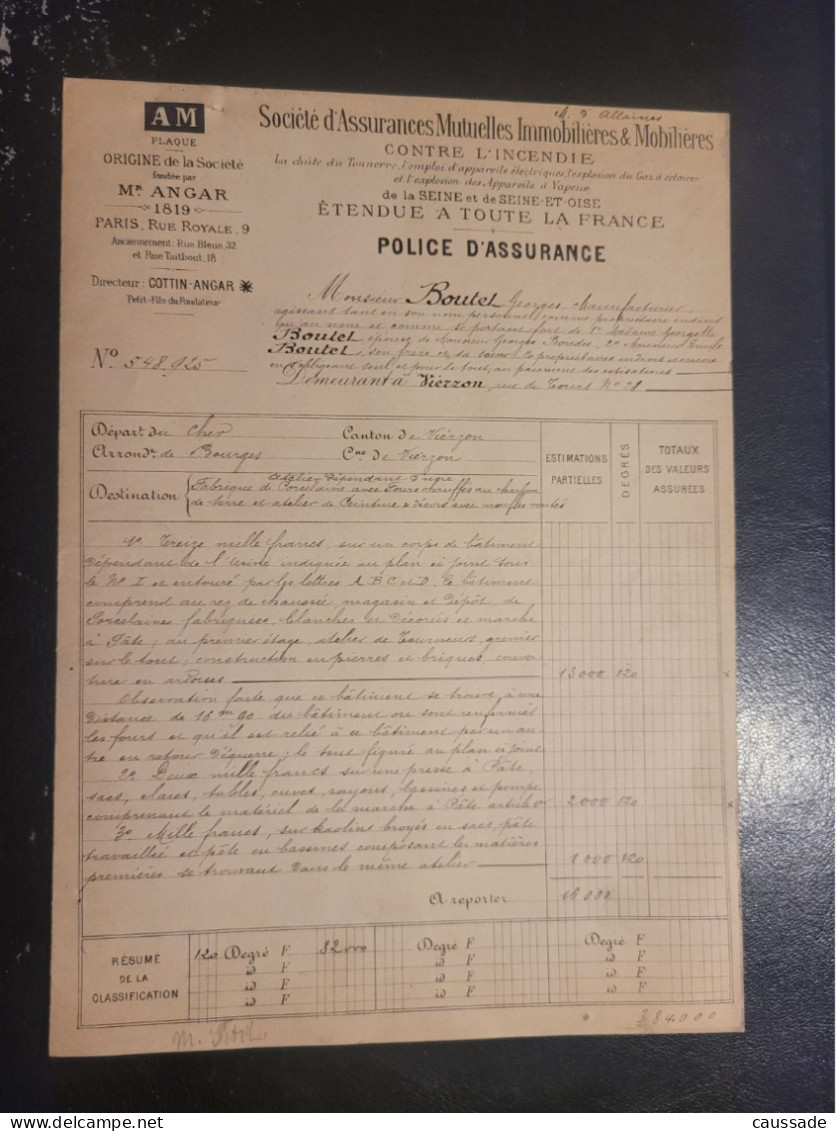 AM
PLAQUE
ORIGINE de la Société
fondée par
MR. ANGAR
1819
PARIS, RUE ROYALE, 9
Anciennement: Rue Bleue, 32
et Rue Taitbout, 18
Directeur: COTTIN-ANGAR
Petit-Fils du Fondateur
No 548,925
M. d'Allaines
Société d'Assurances Mutuelles Immobilières & Mobilières
CONTRE L'INCENDIE
La chûte du Tonnerre, l'emploi d'appareils électriques, l'explosion du Gaz à éclairer
et l'explosion des Appareils à Vapeur
de la SEINE et de SEINE-ET-OISE
ÉTENDUE A TOUTE LA FRANCE
POLICE D'ASSURANCE
Monsieur Boutet Georges, Manufacturier
agissant tant en son nom personnel comme propriétaire indivis
qu'au nom et comme se portant fort de 1o Madame Georgette
Boutet épouse de Monsieur Georges 2o Monsieur Emile
Boutet, son frère et sa soeur co propriétaires indivis et encore
en s'obligeant seul et pour le tout, au paiement des cotisations
Demeurant à Vierzon, rue de Tours No 28
Départ. du Cher Canton de Vierzon
Arrondt. de Bourges Cne de Vierzon
ESTIMATIONS
PARTIELLES
DEGRÉS
TOTAUX
DES VALEURS
ASSURÉES
Atelier Dépendant d'une
Destination Fabrique de Porcelaine avec fours chauffés au charbon
de terre et atelier de Peinture & décors avec moufles
1o Treize mille francs, sur un corps de bâtiment
dépendant de l'usine indiquée au plan ci joint sous
le No I et entouré par les lettres A.B.C et D. Ce bâtiment
comprend au rez de chaussée, magasin et dépôt de
Porcelaines fabriquées, blanches et décorés et marche
à Pâte; au premier étage, atelier de Tourneurs, grenier
sur le tout; construction en pierres et briques, couver
ture en ardoises 13000 120
Observation faite que ce bâtiment se trouve à une
distance de 16m 90 du bâtiment où sont renfermés
les fours et qu'il est relié à ce bâtiment par un au
tre en retour d'équerre; le tout figuré au plan ci joint
2o Deux mille francs sur une presse à Pâte,
sacs, claies, tables, cuves, rayons, bassines et pompe
comprenant le matériel de la marche à Pâte article 1o 2000 120
3o Mille francs, sur kaolins broyés en sacs, pâte
travaillée et pâte en bassines composant les matières
premières se trouvant dans le même atelier 1000 120
A reporter 16000
RÉSUMÉ
DE LA
CLASSIFICATION
120 Degré F 82000 Degré F Degré F
id F id F id F
id F id F id F
id F id F id F
384.000
caussade